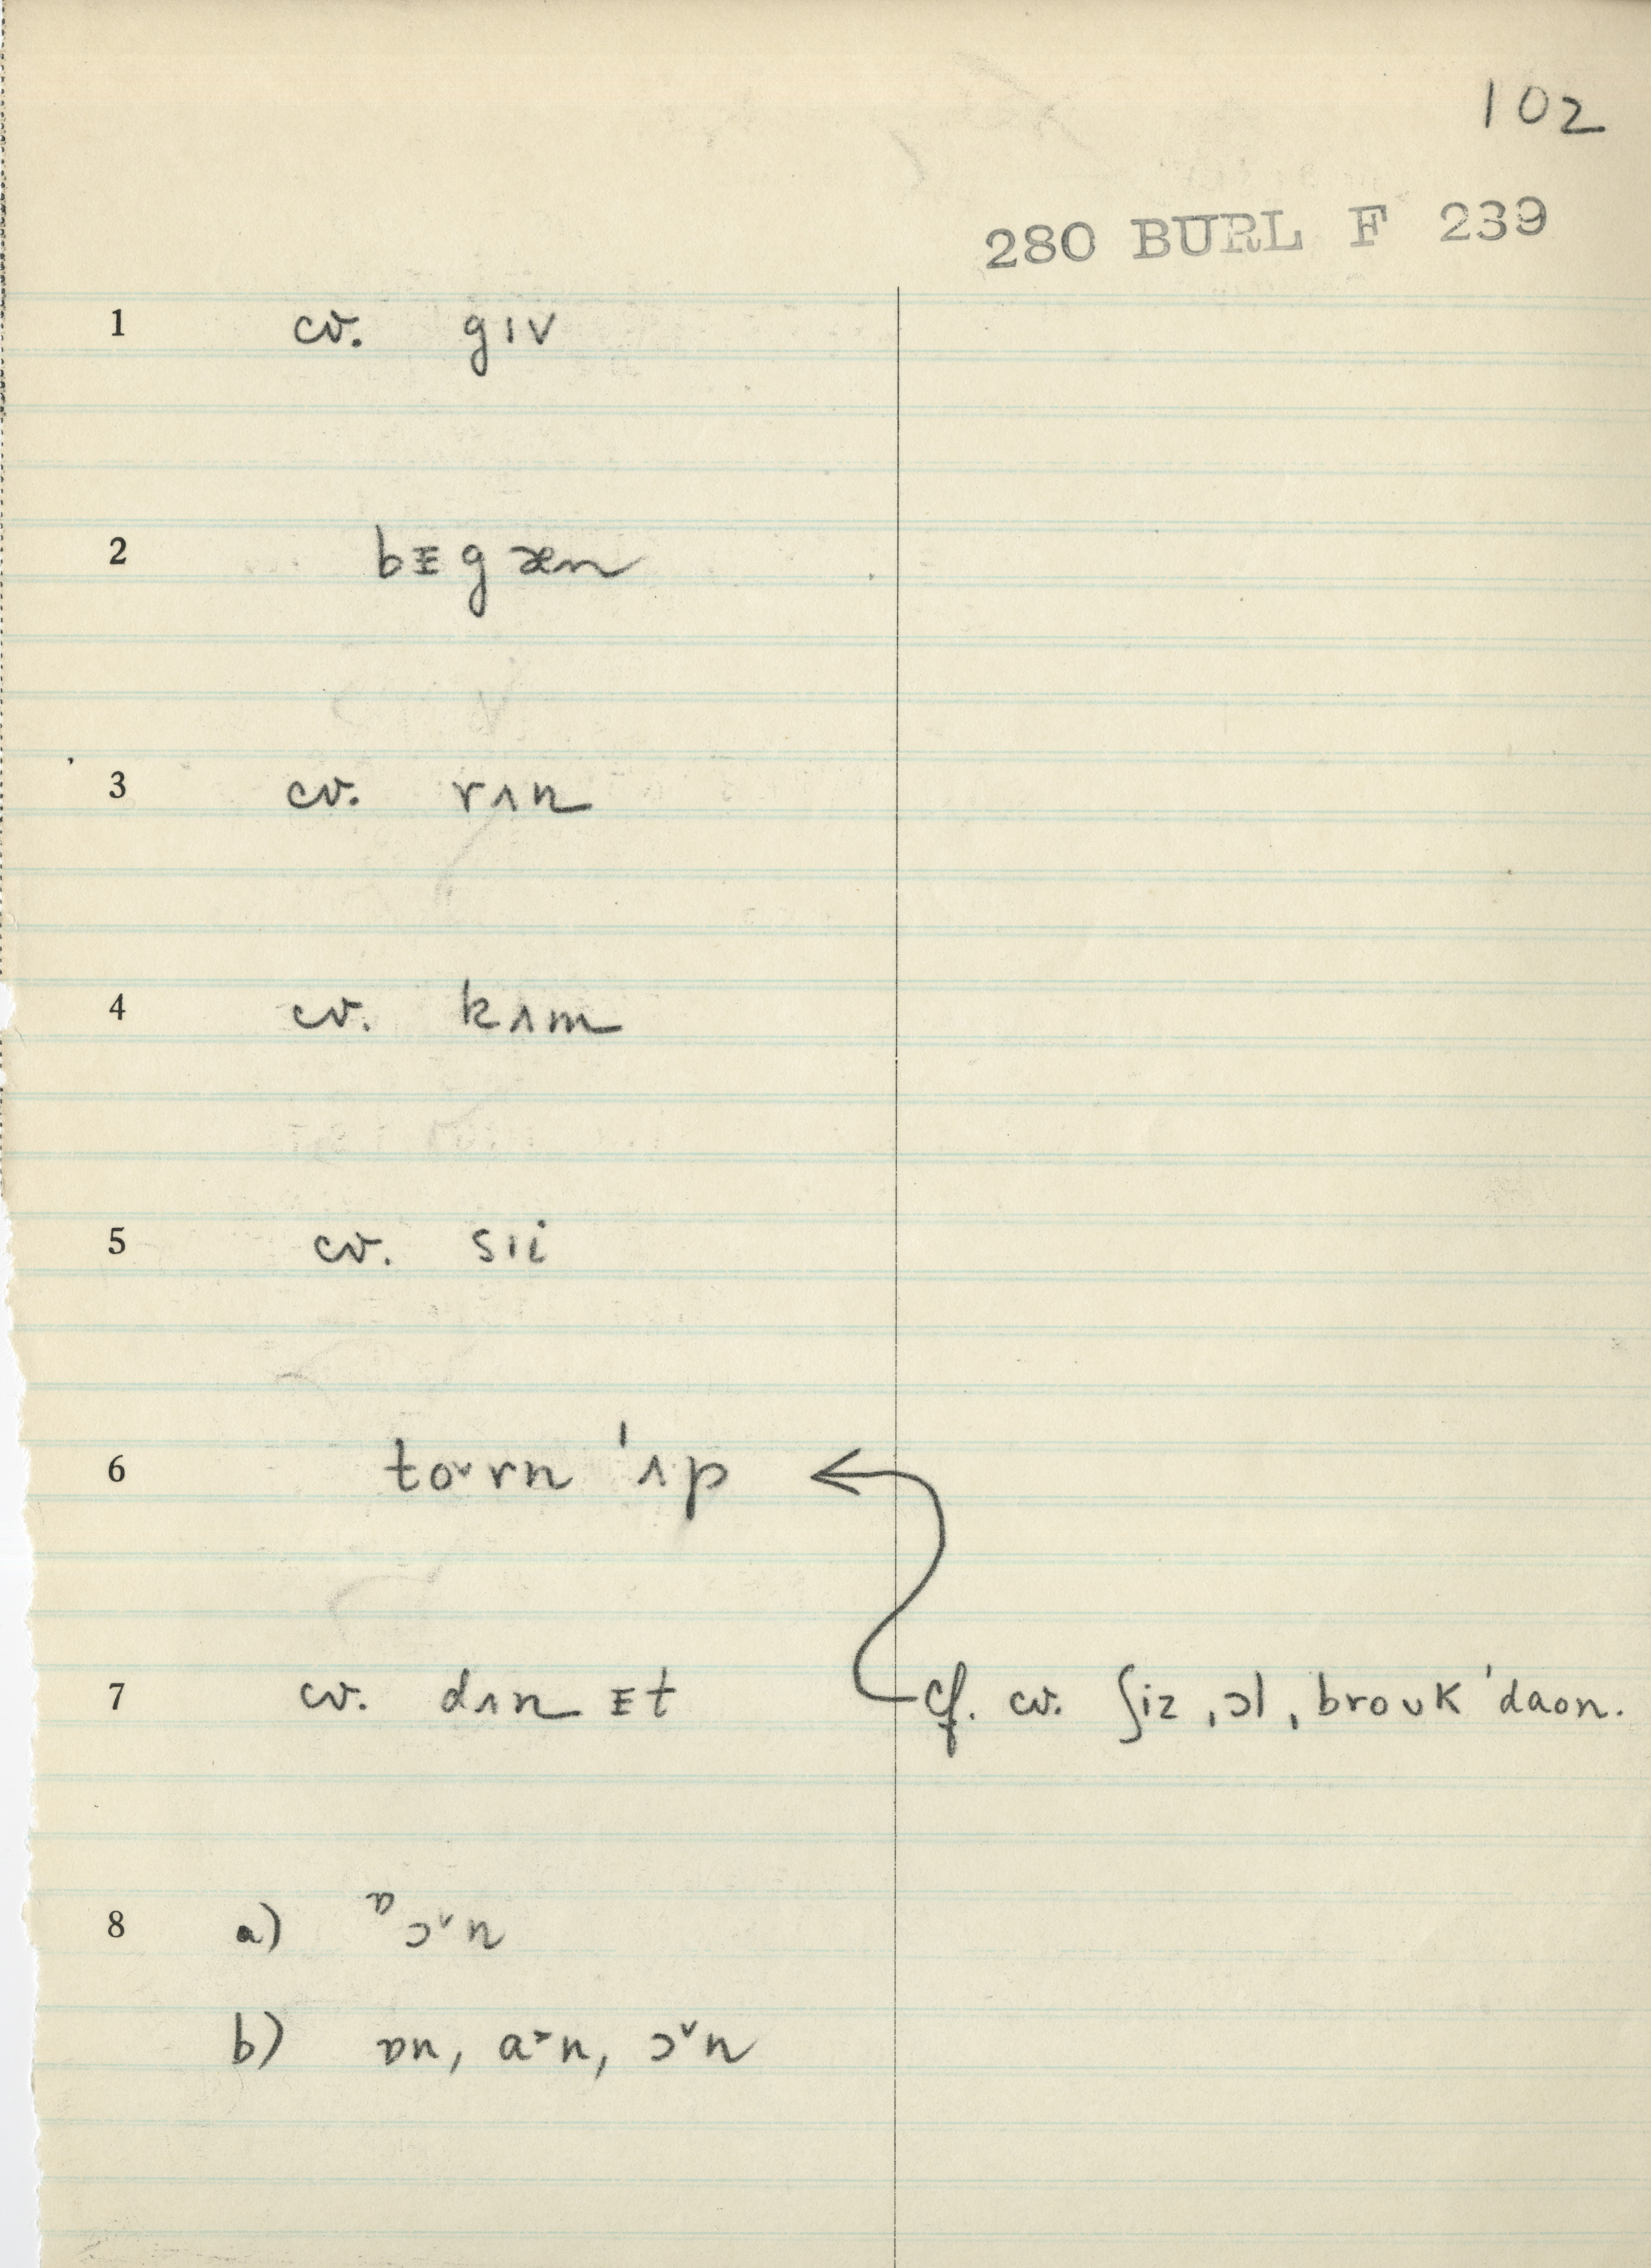 102
280 BURL F 239
1 cv. gɪv
2 bɪ̵gæn
3 cv. rʌn
4 cv. kʌm
5 cv. sɪi
6 to˅rn ˈʌp
7 cv. dʌn ɪ̵t cf. cv. ʃiz ˌɔl ˌbroʊk ˈdaʊn.
8 a) ᶛɔ˅n
b) ɒn, a˃n, ɔ˅n